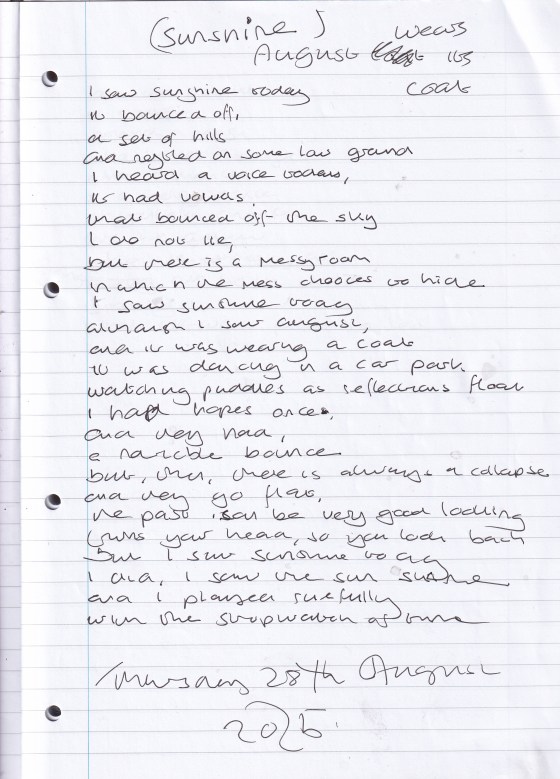 (Sunshine)
August wears its
coat
I saw sunshine today
it bounced off,
a set of hills
and rested on some low ground
I heard a voice today,
it had vowels,
that bounced off the sky
I do not lie,
but there is a messy room
in which the mess chooses to hide
I saw sunshine today
although I saw august,
and it was wearing a coat
it was dancing in a car park.
watching puddles as reflections float
I had hopes once,
and they had,
a bounce
but, then, there is always a collapse
and they go flat,
the past can be very good looking
turns your head, so you look back
but I saw sunshine today
I did, I saw the sun shine
and I played ruefully
with the stopwatch of time
Thursday 28th August
2025.